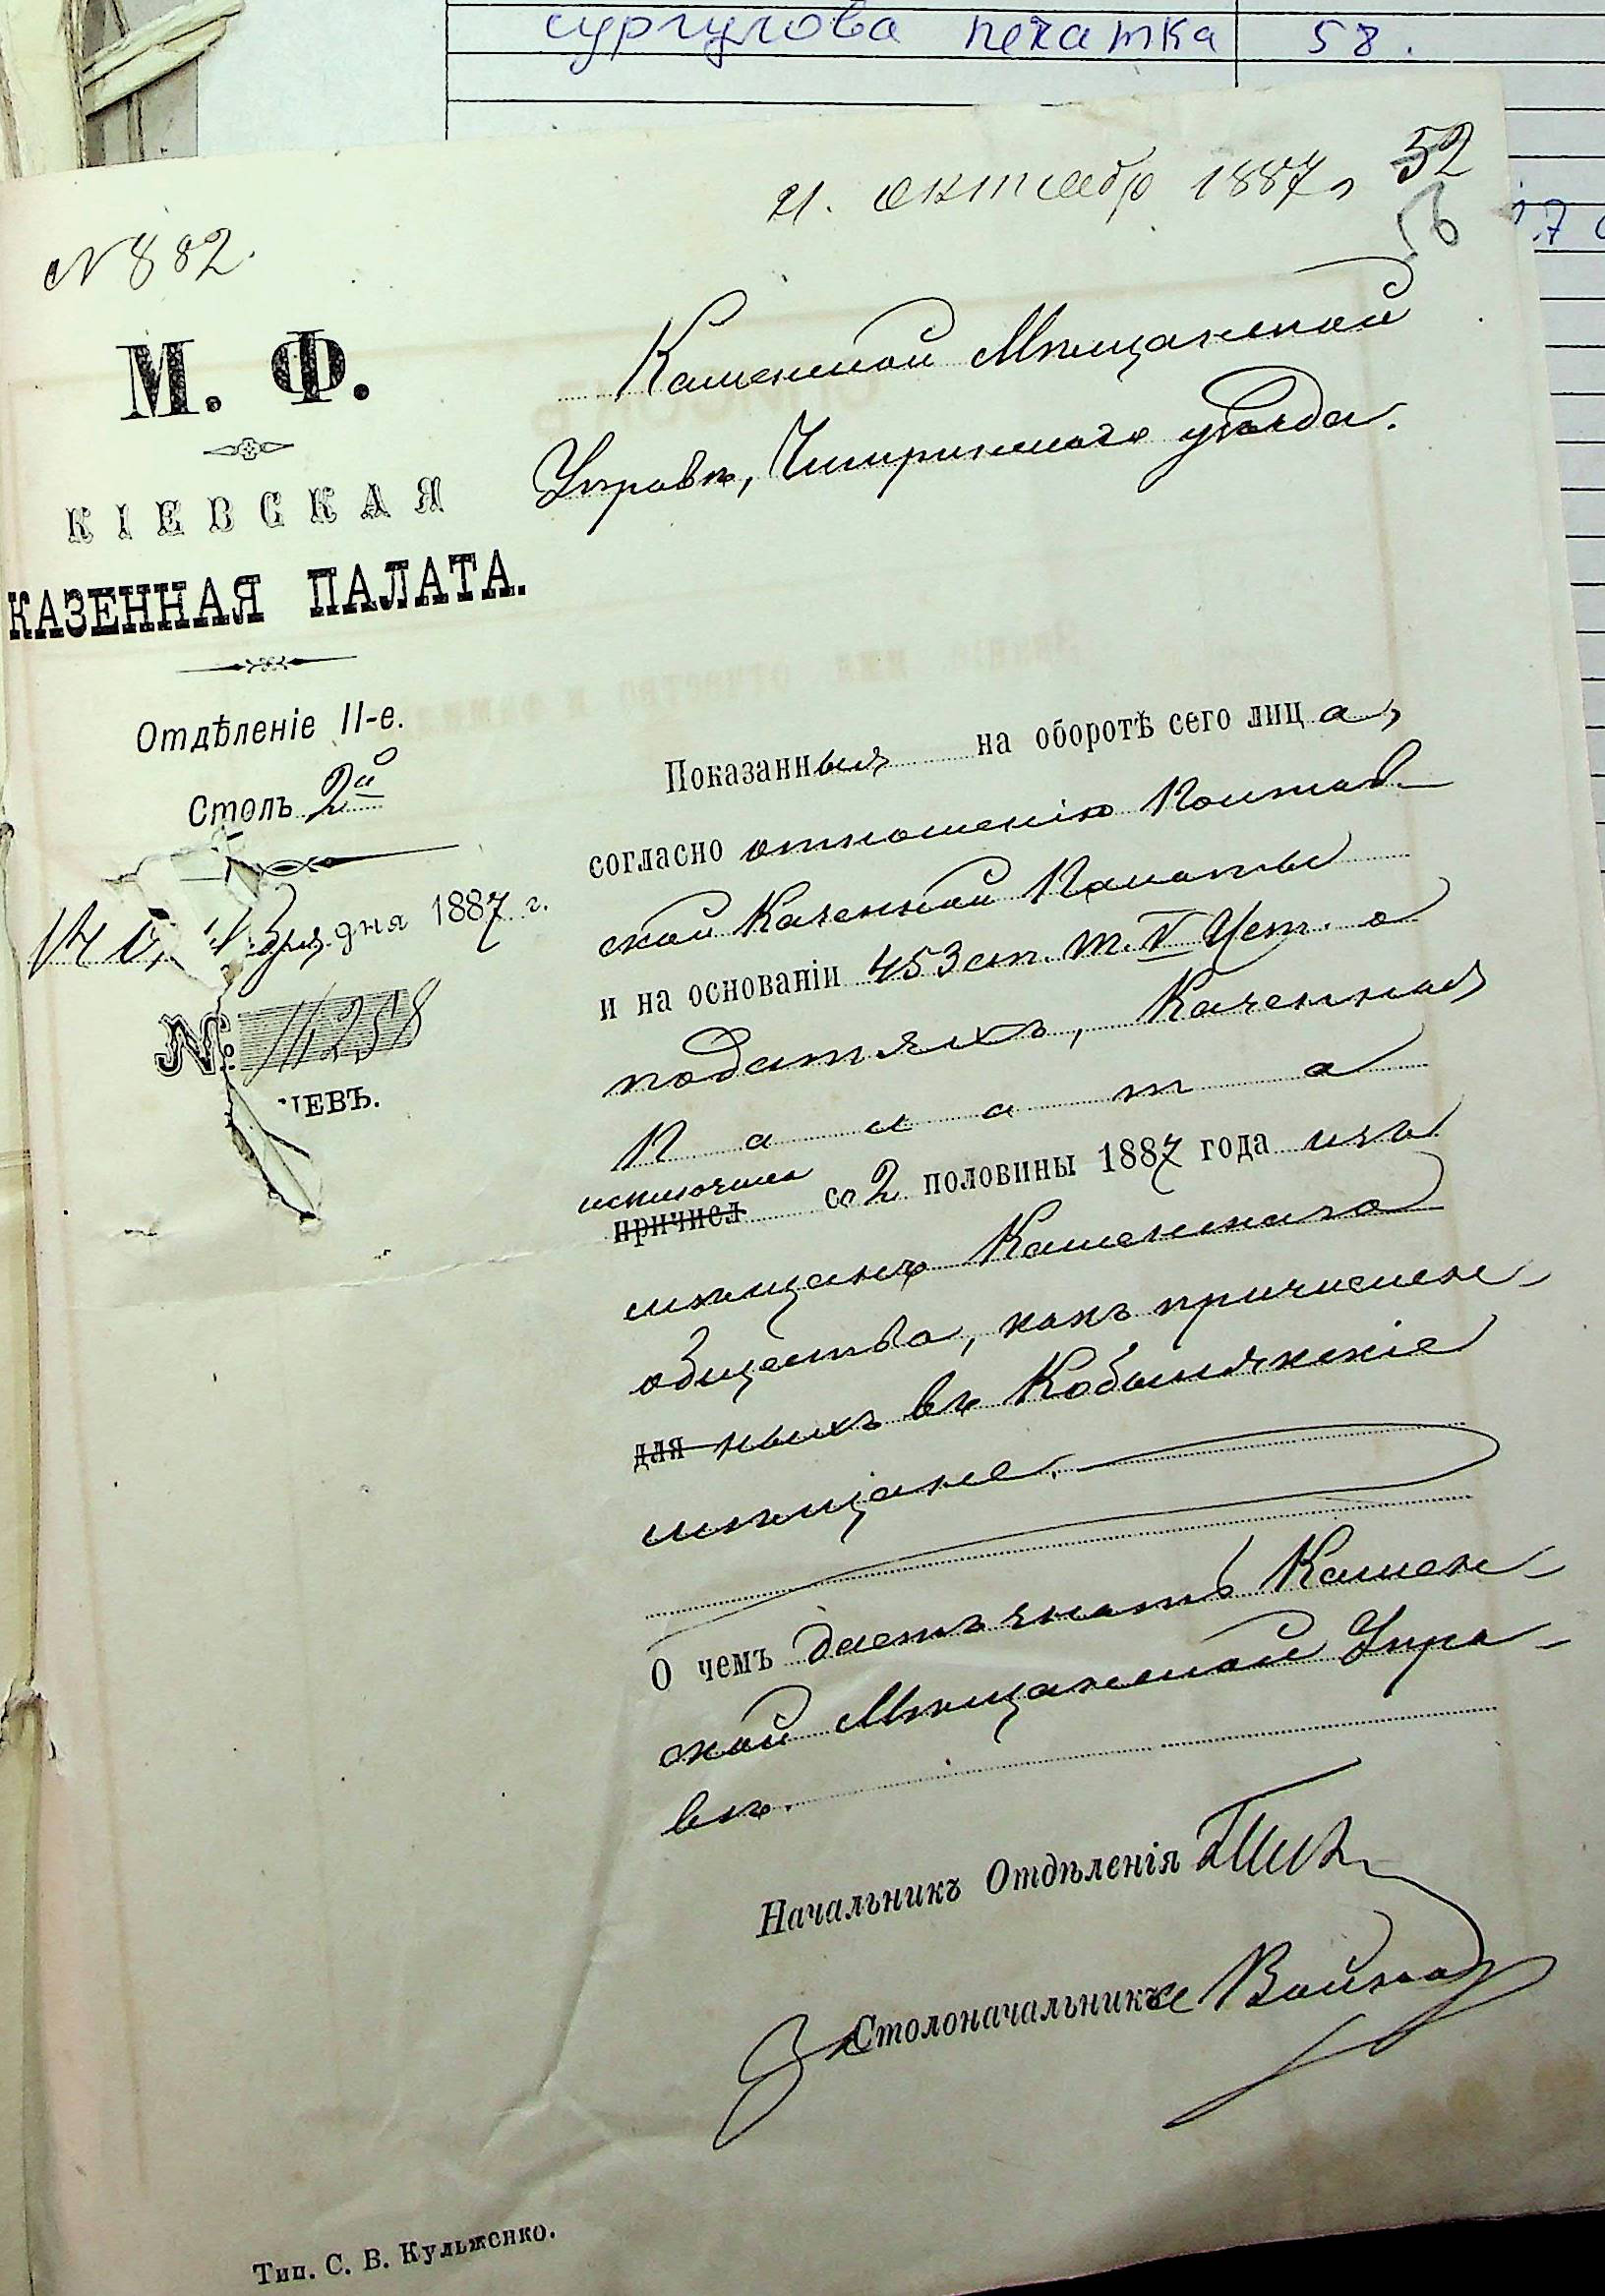 сургучова печатка 58.
21. октября 1887 г
52
56
N 882.
М. Ф.
КІЕВСКАЯ
КАЗЕННАЯ ПАЛАТА.
Отдѣленіе II-е.
Столъ 2й
дня 1887 г.
№ 14258
ІЕВЪ.
Каменской Мѣщанской
Управѣ, Чигиринскаго уѣзда.
Показанныя на оборотѣ сего лица,
согласно отношенію Полтав-
ской Казенной Палаты
и на основаніи 453 ст. т. V Уст. о
податяхъ, Казенная
Палата
исключила
причисл со 2 половины 1887 года изъ
мѣщанъ Каменскаго
общества, какъ причислен-
для ныхъ въ Кобелякскіе
мѣщане.
О чемъ даетъ знать Камен-
ской Мѣщанской Упра-
вѣ.
Начальникъ Отдѣленія
За Столоначальника
Тип. С. В. Кульженко.